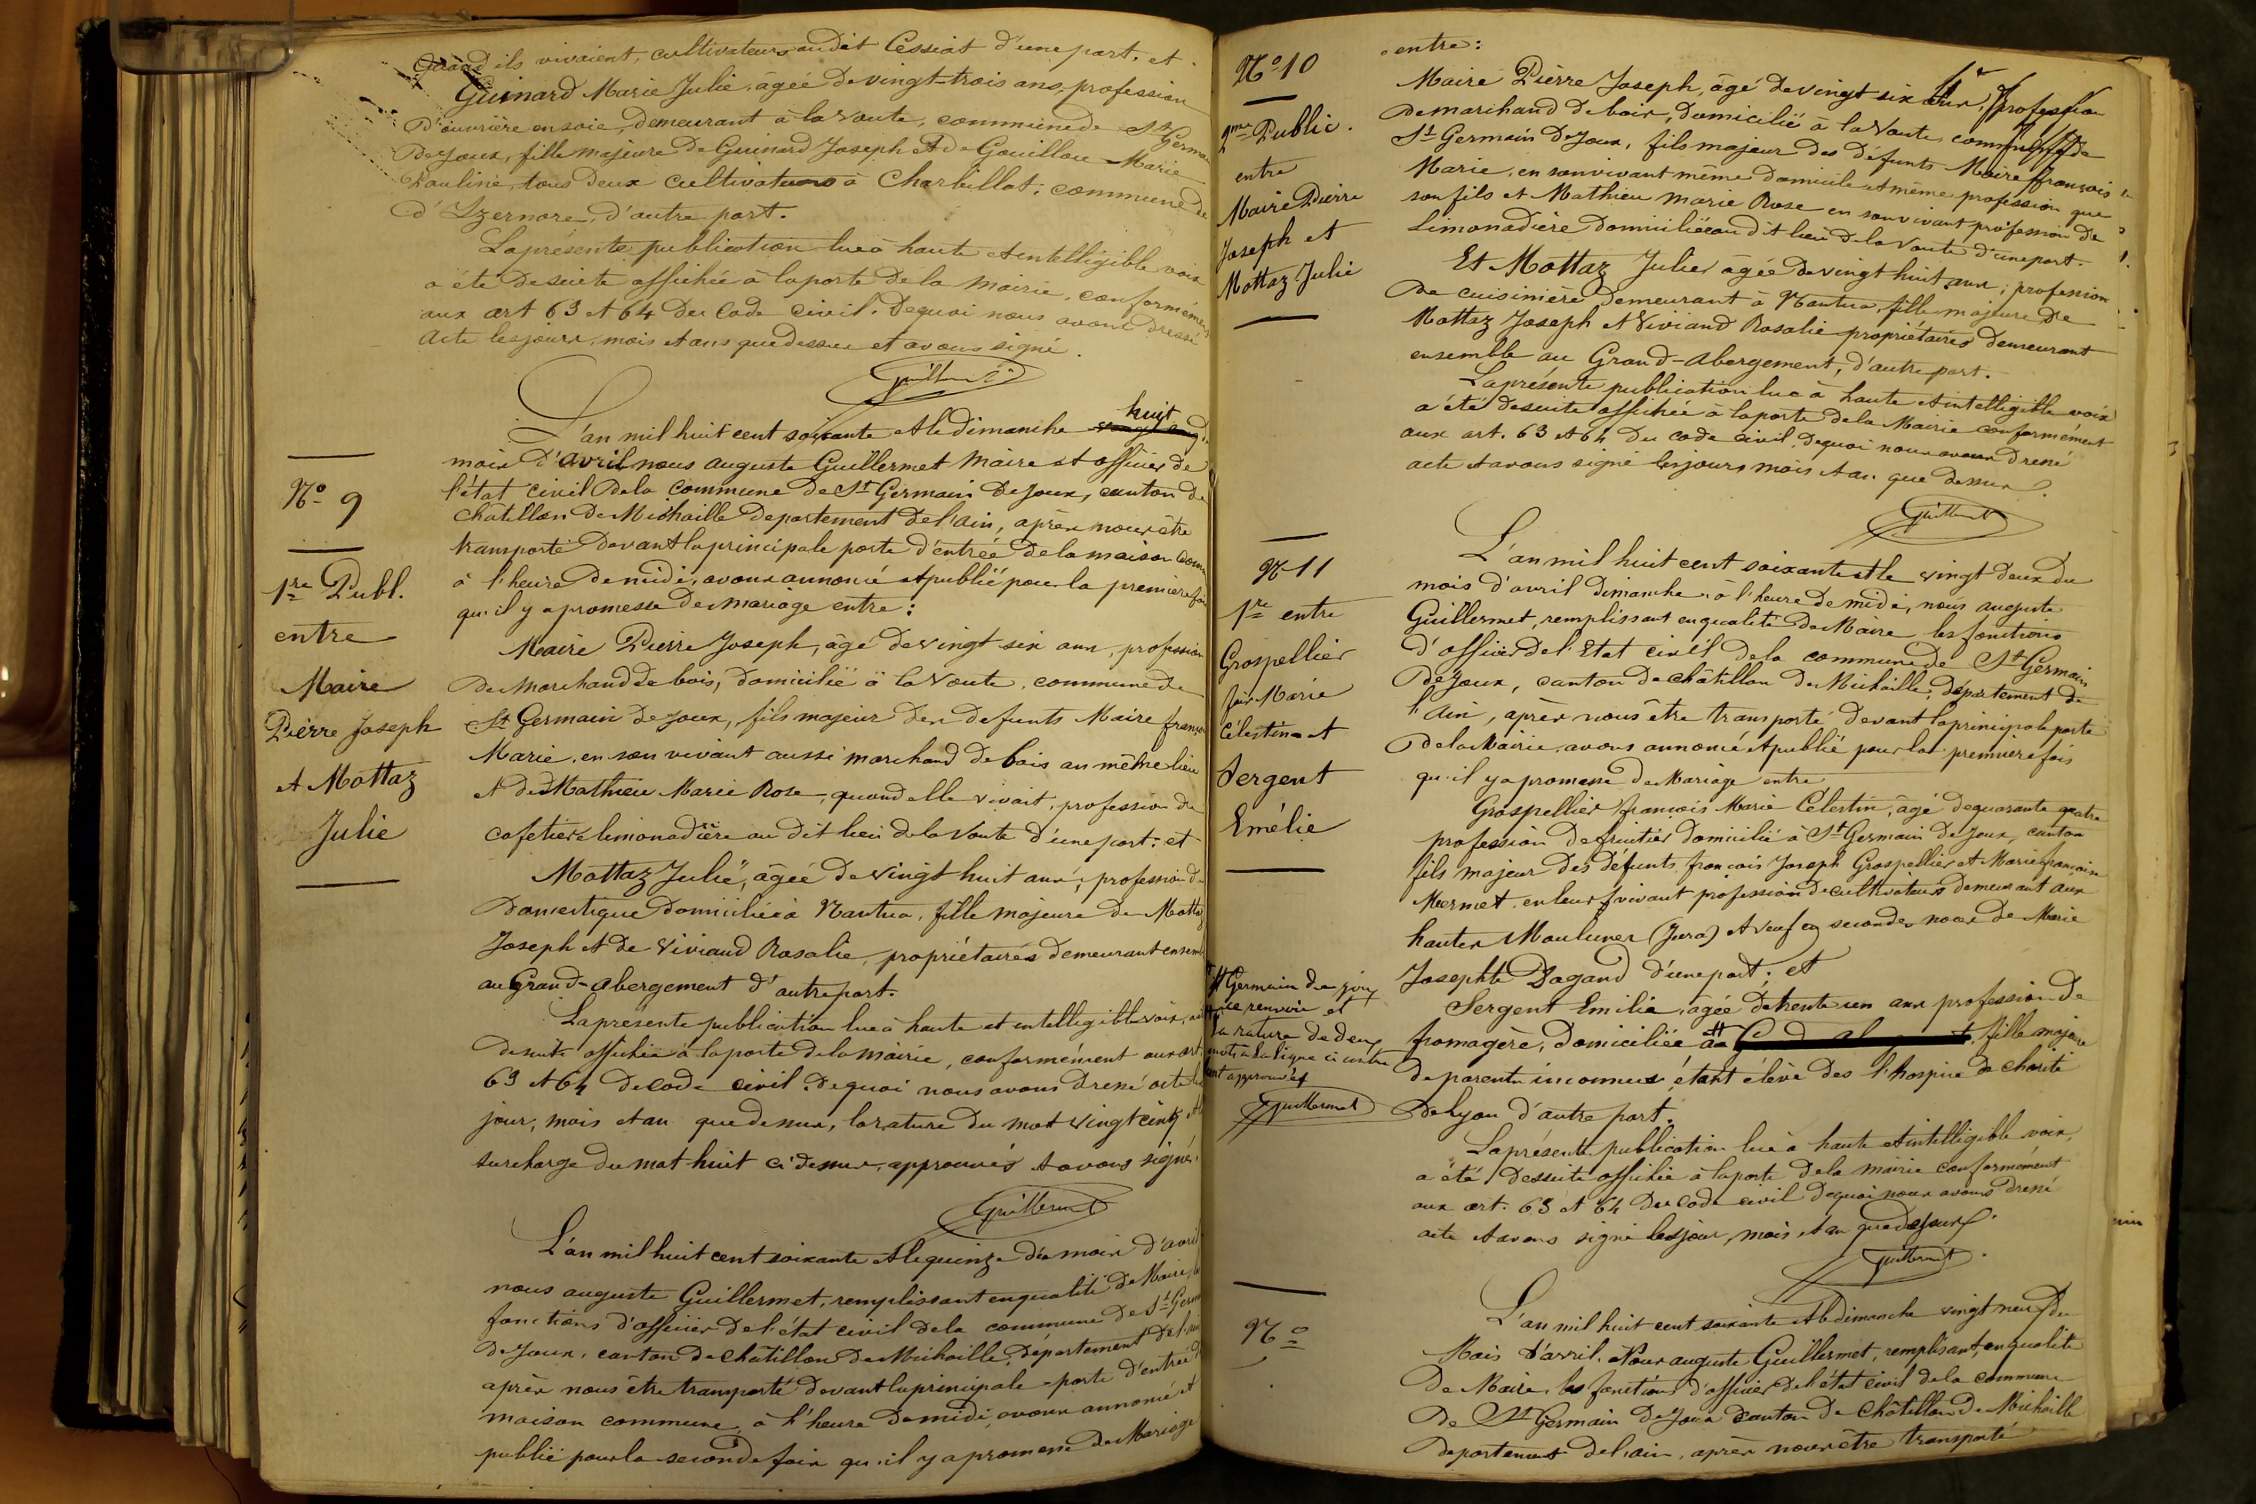 quand ils vivaient, cultivateurs audit Cessiat d'une part, et
Guinard Marie Julie, âgée de vingt-trois ans, profession
d'ouvrière en soie, demeurant à la Voute, commune de St Germain
de Joux, fille majeure de Guinard Joseph et de Gouillou Marie
Pauline, tous deux cultivateurs à Charbillat, commune de
d'Izernore, d'autre part.
La présente publication lue à haute et intelligible voix
a été de suite affichée à la porte de la Mairie, conformément
aux art 63 et 64 du Code civil. Dequoi nous avons dressé
acte les jour, mois et ans que dessus et avons signé.
Guillermet
L'an mil huit cent soixante et le dimanche huit
mois d'avril nous auguste Guillermet Maire et officier de
l'état civil de la Commune de St Germain de Joux, canton de
Châtillon de Michaille departement de l'ain, après nous être
transporté devant la principale porte d'entrée de la maison
à l'heure de midi, avons annoncé et publié pour la première fois
qu'il y a promesse de mariage entre :
Maire Pierre Joseph, âgé de vingt six ans, profession
de Marchand de bois, domicilié à la Voute, commune de
St Germain de Joux, fils majeur des defunts Maire françois
Marie, en son vivant aussi marchand de bois au même lieu
et de Mathieu Marie Rose, quand elle vivait, profession de
cafetière limonadière au dit lieu de la Voute d'une part : et
Mottaz Julie, âgée de vingt huit ans, profession de
domestique domiciliée à Nantua, fille majeure de Mottaz
Joseph et de Viviand Rosalie, propriétaires demeurant ensemble
au Grand-abergement d'autre part.
La presente publication lue à haute et intelligible voix, a été
de suite affichée à la porte de la mairie, conformément aux art.
63 et 64 de code civil. Dequoi nous avons dressé acte les
jour, mois et an que dessus, la rature du mot vingt cinq et la
surcharge du mot huit ci dessus, approuvés et avons signé.
Guillermet
L'an mil huit cent soixante et le quinze du mois d'avril
nous auguste Guillermet, remplissant en qualité de Maire, les
fonctions d'officier de l'état civil de la commune de St Germain
de Joux, canton de Châtillon de Michaille, département de l'ain
après nous être transporté devant la principale porte d'entrée de
maison commune, à l'heure de midi, avons annoncé et
publié pour la seconde fois qu'il y a promesse de Mariage
No 9
1re Publ.
entre
Maire
Pierre Joseph
et Mottaz
Julie
No 10
2me Public.
entre
Maire Pierre
Joseph et
Mottaz Julie
entre :
Maire Pierre Joseph, âgé de vingt six ans, profession
de marchand de bois, domicilié à la Voute commune de
St Germain de Joux, fils majeur des défunts Maire françois
Marie, en son vivant même domicile et même profession que
son fils et Mathieu Marie Rose en son vivant profession de
Limonadière domiciliée au dit lieu de la Voute d'une part.
Et Mottaz Julie âgée de vingt huit ans, profession
de cuisinière demeurant à Nantua, fille majeure de
Mottaz Joseph et Viviand Rosalie propriétaires demeurant
ensemble au Grand-abergement, d'autre part.
La présente publication lue à haute et intelligible voix
a été de suite affichée à la porte de la Mairie conformément
aux art. 63 et 64 du code civil, dequoi nous avons dressé
acte et avons signé les jours, mois et an que dessus.
Guillermet
No 11
1re entre
Grospellier
Célestin et
Sergent
Emélie
L'an mil huit cent soixante et le vingt deux du
mois d'avril dimanche, à l'heure de midi, nous auguste
Guillermet, remplissant en qualité de Maire les fonctions
d'officier de l'Etat civil de la commune de St Germain
de Joux, canton de Châtillon de Michaille, département de
l'Ain, après nous être transporté devant la principale porte
de la Mairie, avons annoncé et publié pour la premiere fois
qu'il y a promesse de Mariage entre
Grospellier françois Marie Célestin, âgé de quarante quatre
profession de fruitier domicilié à St Germain de Joux, canton
fils majeur des défunts françois Joseph Grospellier et Marie françoise
Mermet, en leur vivant profession de cultivateurs demeurant aux
hautes Moulunes (Jura) et veuf en secondes noces de Marie
Josephte Dagand d'une part ; et
Sergent Emilie, âgée de trente un ans profession de
fromagère, domiciliée à fille majeure
de parents inconnus, étant élève des l'hospice de charité
de Lyon d'autre part.
St Germain de joux
ce renvoi et
la rature de deux
mots à la ligne ci contre
sont approuvés
Guillermet
La présente publication lue à haute et intelligible voix,
a été de suite affichée à la porte de la mairie conformément
aux art. 63 et 64 du Code civil dequoi nous avons dressé
acte et avons signé les jour, mois et an que dessus.
Guillermet
No
L'an mil huit cent soixante et le dimanche vingt neuf du
Mois d'avril. Nous auguste Guillermet, remplissant, en qualité
de Maire, les fonctions d'officier de l'état civil de la commune
de St Germain de Joux canton de Châtillon de Michaille
departement de l'ain, après nous être transporté